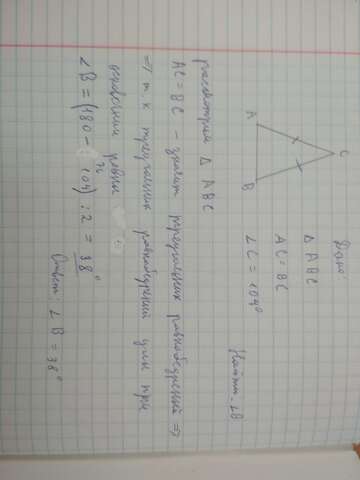 Дано:
△ ABC
AC = BC
∠C = 104°
Найти: ∠B
C
A
B
рассмотрим △ ABC
AC = BC - значит треугольник равнобедренный ⇒
⇒ т.к треугольник равнобедренный углы при
основании равны
∠B = (180 - 104) : 2 = 38°
76
Ответ: ∠B = 38°